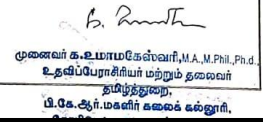 முனைவர் க.உமாமகேஸ்வரி,M.A.,M.Phil.,Ph.d.,
உதவிப்பேராசிரியர் மற்றும் தலைவர்
தமிழ்த்துறை,
பி.கே.ஆர்.மகளிர் கலைக் கல்லூரி,